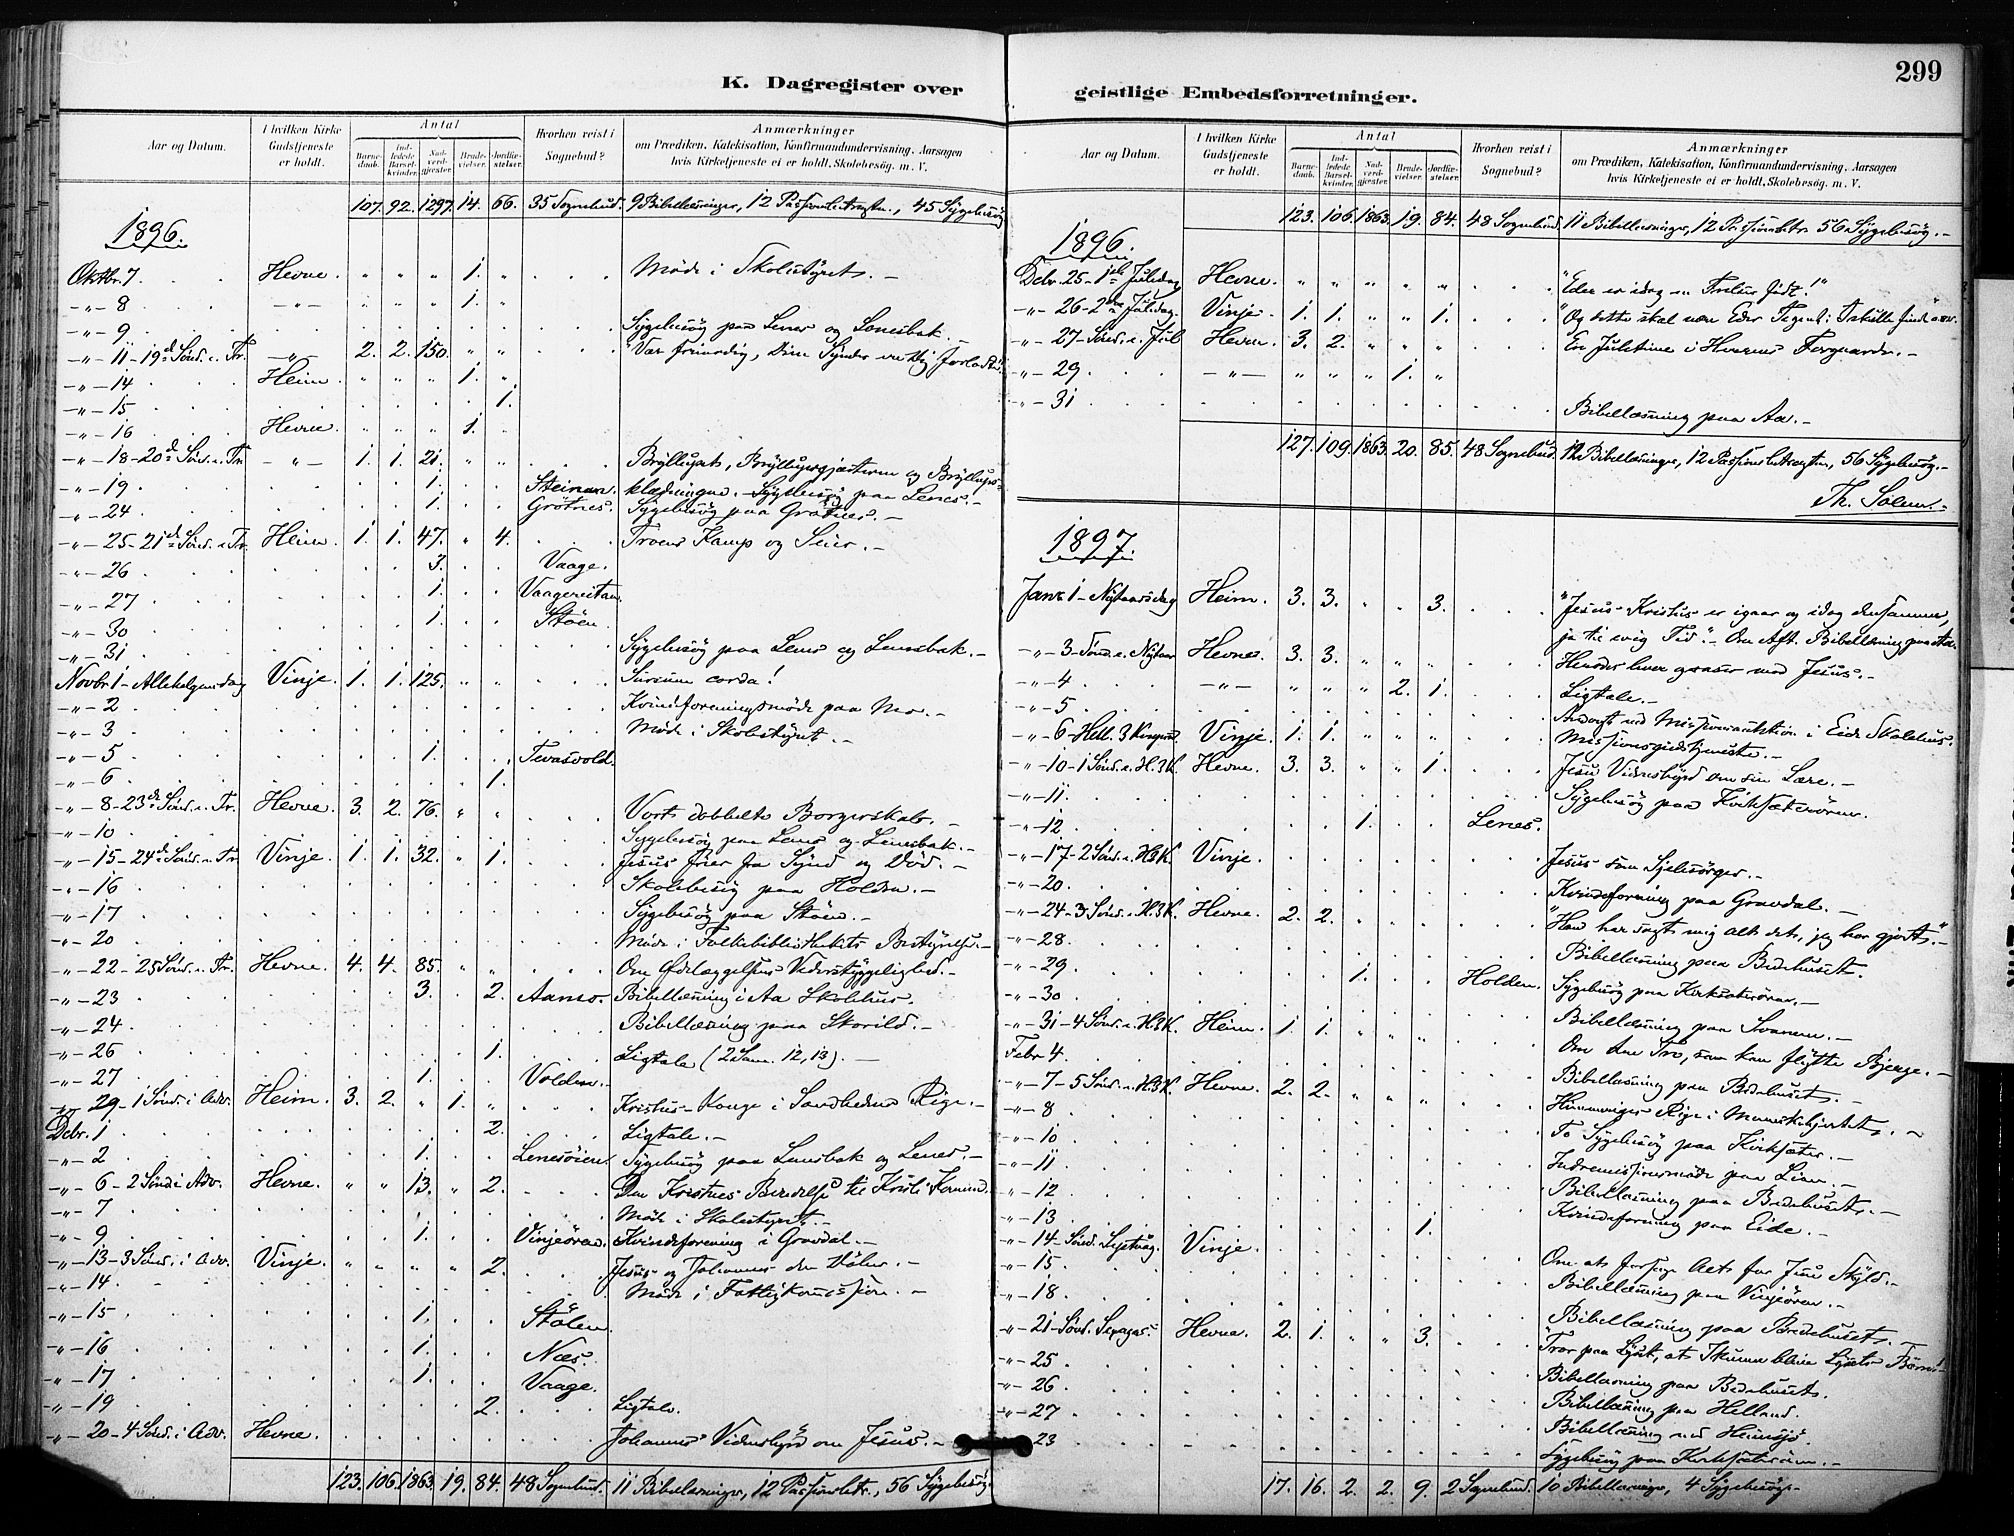 K. Dagregister over
Aar og Datum.
I hvilken Kirke Gudstjeneste er holdt.
Antal
Barnedaab.
Indledede Barselkvinder.
Nadverdgjester.
Brudevielser.
Jordfæstelser.
Hvorhen reist i Sognebud?
Anmærkninger
om Prædiken, Katekisation, Konfirmandundervisning, Aarsagen
hvis Kirketjeneste ei er holdt, Skolebesøg. m. V.
107. 92. 1297. 14. 66. 35 Sognebud. 9 Bibellæsninger, 12 Passionsbetragtn., 45 Sygebesøg
1896.
Oktbr. 7 Hevne. " " " 1. " Møde i Skolestyret. –
-"- 8 -"- " " " 1. "
-"- 9 Sygebesøg paa Lenes og Lenesbak. –
-"- 11 - 19de Sønd. e. Tr. -"- 2. 2. 150. " " "Vær frimodig, Dine Synder ere Dig forladte."
-"- 14 Heim. " " " 1. "
-"- 15 1.
-"- 16 Hevne. " " " 1. "
-"- 18 - 20de Sønd. e. Tr. -"- 1. 1. 21. " " Bryllupet, Bryllupsgjæsterne og Bryllups-
-"- 19 1. Steinan. klædningen. – Sygebesøg paa Lenes. –
-"- 24 1. Grötnes. Sygebesøg paa Grötnes. –
-"- 25 - 21de Sønd. e. Tr. Heim. 1. 1. 47. " 4. Troens Kamp og Seier. –
-"- 26 3. Vaage.
-"- 27 1. Vaagereitan.
-"- 30 1. Stöen.
-"- 31 Sygebesøg paa Lenes og Lenesbak. –
Novbr. 1 - Allehelgensdag Vinje. 1. 1. 125. " " Sursum corda!
-"- 2 Kvindeforeningsmøde paa Mo. –
-"- 3 Møde i Skolestyret. –
-"- 5 1. Tevasvold.
-"- 6 1.
-"- 8 - 23de Sønd. e. Tr. Hevne. 3. 2. 76. " " Vort dobbelte Borgerskab. –
-"- 10 Sygebesøg paa Lenes og Lenesbak. –
-"- 15 - 24de Sønd. e. Tr. Vinje. 1. 1. 32. " 1. Jesus frier fra Synd og Død. –
-"- 16 Skolebesøg paa Holden. –
-"- 17 Sygebesøg paa Stöen. –
-"- 20 Møde i Folkebibliothekets Bestyrelse. –
-"- 22 - 25 Sønd. e. Tr. Hevne. 4. 4. 85. " " Om Ødelæggelsens Vederstyggelighed. –
-"- 23 3. 2. Aamo. Bibellæsning i Aa Skolehus.
-"- 24 Bibellæsning paa Storild. –
-"- 26 1. Ligtale (2 Sam. 12, 13). –
-"- 27 1. Volden.
-"- 29 - 1 Sønd. i Adv. Heim. 3. 2. " 1. " Kristus – Konge i Sandhedens Rige. –
Debr. 1 2. Ligtale. –
-"- 2 1. Lenesøien. Sygebesøg paa Lenesbak og Lenes. –
-"- 6 - 2 Sønd i Adv. Hevne. " " 13. " 2. Den Kristnes Beredelse til Kristi Komme.
-"- 7 Møde i Skolestyret. –
-"- 9 1. Vinjeören. Kvindeforening i Gravdal. –
-"- 13 - 3 Sønd. i Adv. Vinje. " " " " 2. Jesus og Johannes den Döber. –
-"- 14 Møde i Fattigkomissjon. –
-"- 15 1. Stölen.
-"- 16 1. Næs.
-"- 17 1. Vaage.
-"- 19 2. Ligtale.
-"- 20 - 4 Sønd. i Adv. Hevne. Johannes' Vidnesbyrd om Jesus. –
123. 106. 1863. 19. 84. 48 Sognebud. 11 Bibellæsninger, 12 Passionsbetr., 56 Sygebesøg
299
geistlige Embedsforretninger.
Aar og Datum.
I hvilken Kirke Gudstjeneste er holdt.
Antal
Barnedaab.
Indledede Barselkvinder.
Nadverdgjester.
Brudevielser.
Jordfæstelser.
Hvorhen reist i Sognebud?
Anmærkninger
om Prædiken, Katekisation, Konfirmandundervisning, Aarsagen
hvis Kirketjeneste ei er holdt, Skolebesøg. m. V.
123. 106. 1863. 19. 84. 48 Sognebud. 11 Bibellæsninger, 12 Passionsbetr. 56 Sygebesøg. –
1896.
Debr. 25 - 1ste Juledag Hevne. " " " " " "Eder er idag en Frelser født!"
-"- 26 - 2den Juledag. Vinje. 1. 1. " " 1. "Og dette skal være Eder Tegnet: I skulle finde
-"- 27 - Sønd. e. Jul Hevne. 3. 2. " " " En Juletime i Herrens Forgaarde. –
-"- 29 -"- " " " 1. "
-"- 31 Bibellæsning paa Aa. –
127. 109. 1863. 20. 85. 48 Sognebud. 12 Bibellæsninger, 12 Passionsbetragtn., 56 Sygebesøg. –
Th. Solem. –
1897.
Janr. 1 - Nytaarsdag Heim. 3. 3. " " 3. "Jesus Kristus er igaar og idag densamme,
ja til evig Tid." – Om Aft. Bibellæsning paa Aa.
-"- 3 - Sønd. e. Nytaar Hevne. 3. 3. " " " med Jesus. –
-"- 4 -"- " " " 2. 1. Ligtale. –
-"- 5 i Eide Skolehus.
-"- 6 - Hell. 3 Konger Vinje. 1. 1. " " " Missionsgudstjeneste. –
-"- 10 - 1 Sønd. e. H.3K. Hevne. 3. 3. " " 1. Jesu Vidnesbyrd om sin Lære. –
-"- 11. Sygebesøg paa Kirksæterøren.
-"- 12 1. Lenes.
-"- 17 - 2 Sønd. e. H3K. Vinje. Jesus som Sjelesørger. –
-"- 20. Kvindeforening paa Gravdal. –
-"- 24 - 3 Sønd. e. H.3K. Hevne. 2. 2. "Han har sagt mig alt det, jeg har gjort". –
-"- 28. Bibellæsning paa Bedehuset.
-"- 29 1. Holden. Sygebesøg paa Kirksæterøren. –
-"- 30 Bibellæsning paa Svanem. –
-"- 31 - 4 Sønd. e. H3K. Heim. 1. 1. " " " Om den Tro, som kan flytte Bjerge. –
Febr. 4. Bibellæsning paa Bedehuset. –
-"- 7 - 5 Sønd. e. H3K. Hevne. 2. 2. " " " Himmeriges Rige i Menneskehjertet. –
-"- 8 To Sygebesøg paa Kirksæter. –
-"- 10 Indremissionsmøde paa Lian. –
-"- 11 Bibellæsning paa Bedehuset. –
-"- 12 Kvindeforening paa Eide. –
-"- 13 1.
-"- 14 - Sønd. Vinje. Om at for Jesu Skyld. –
-"- 15 Bibellæsning paa Vinjeøren. –
-"- 18 Bibellæsning paa Bedehuset.
-"- 21 - Sønd. Hevne. 2. 1. " " 3. "Tror paa Lyset, at I kunne blive Lysets Børn!"
-"- 25 Bibellæsning paa Bedehuset.
-"- 26 Bibellæsning paa Helland.
-"- 27 Bibellæsning ved Heimsjø.
23 Sygebesøg paa Kirksæterøren. –
17. 16. 2. 2. 9. 2 Sognebud. 10 Bibellæsninger, 4 Sygebesøg. –